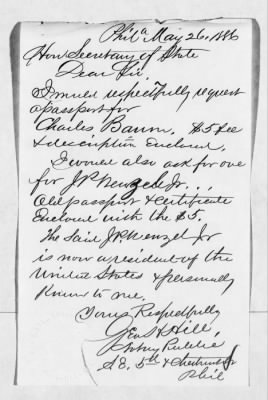 Phila May 26, 1886
Hon Secretary of State
Dear Sir.
I would respectfully request
a passport for
Charles Baum. $5 fee
& description Enclosed.
I would also ask for one
for J.P. Wenzel Jr...
Old passport & certificate
Enclosed with the $5.
The Said J.P. Wenzel Jr
is now a resident of the
United States & personally
Known to me.
Yours Respectfully
Geo. H. Hill,
Notary Public
S.E. 5th & Chestnut St
Phil